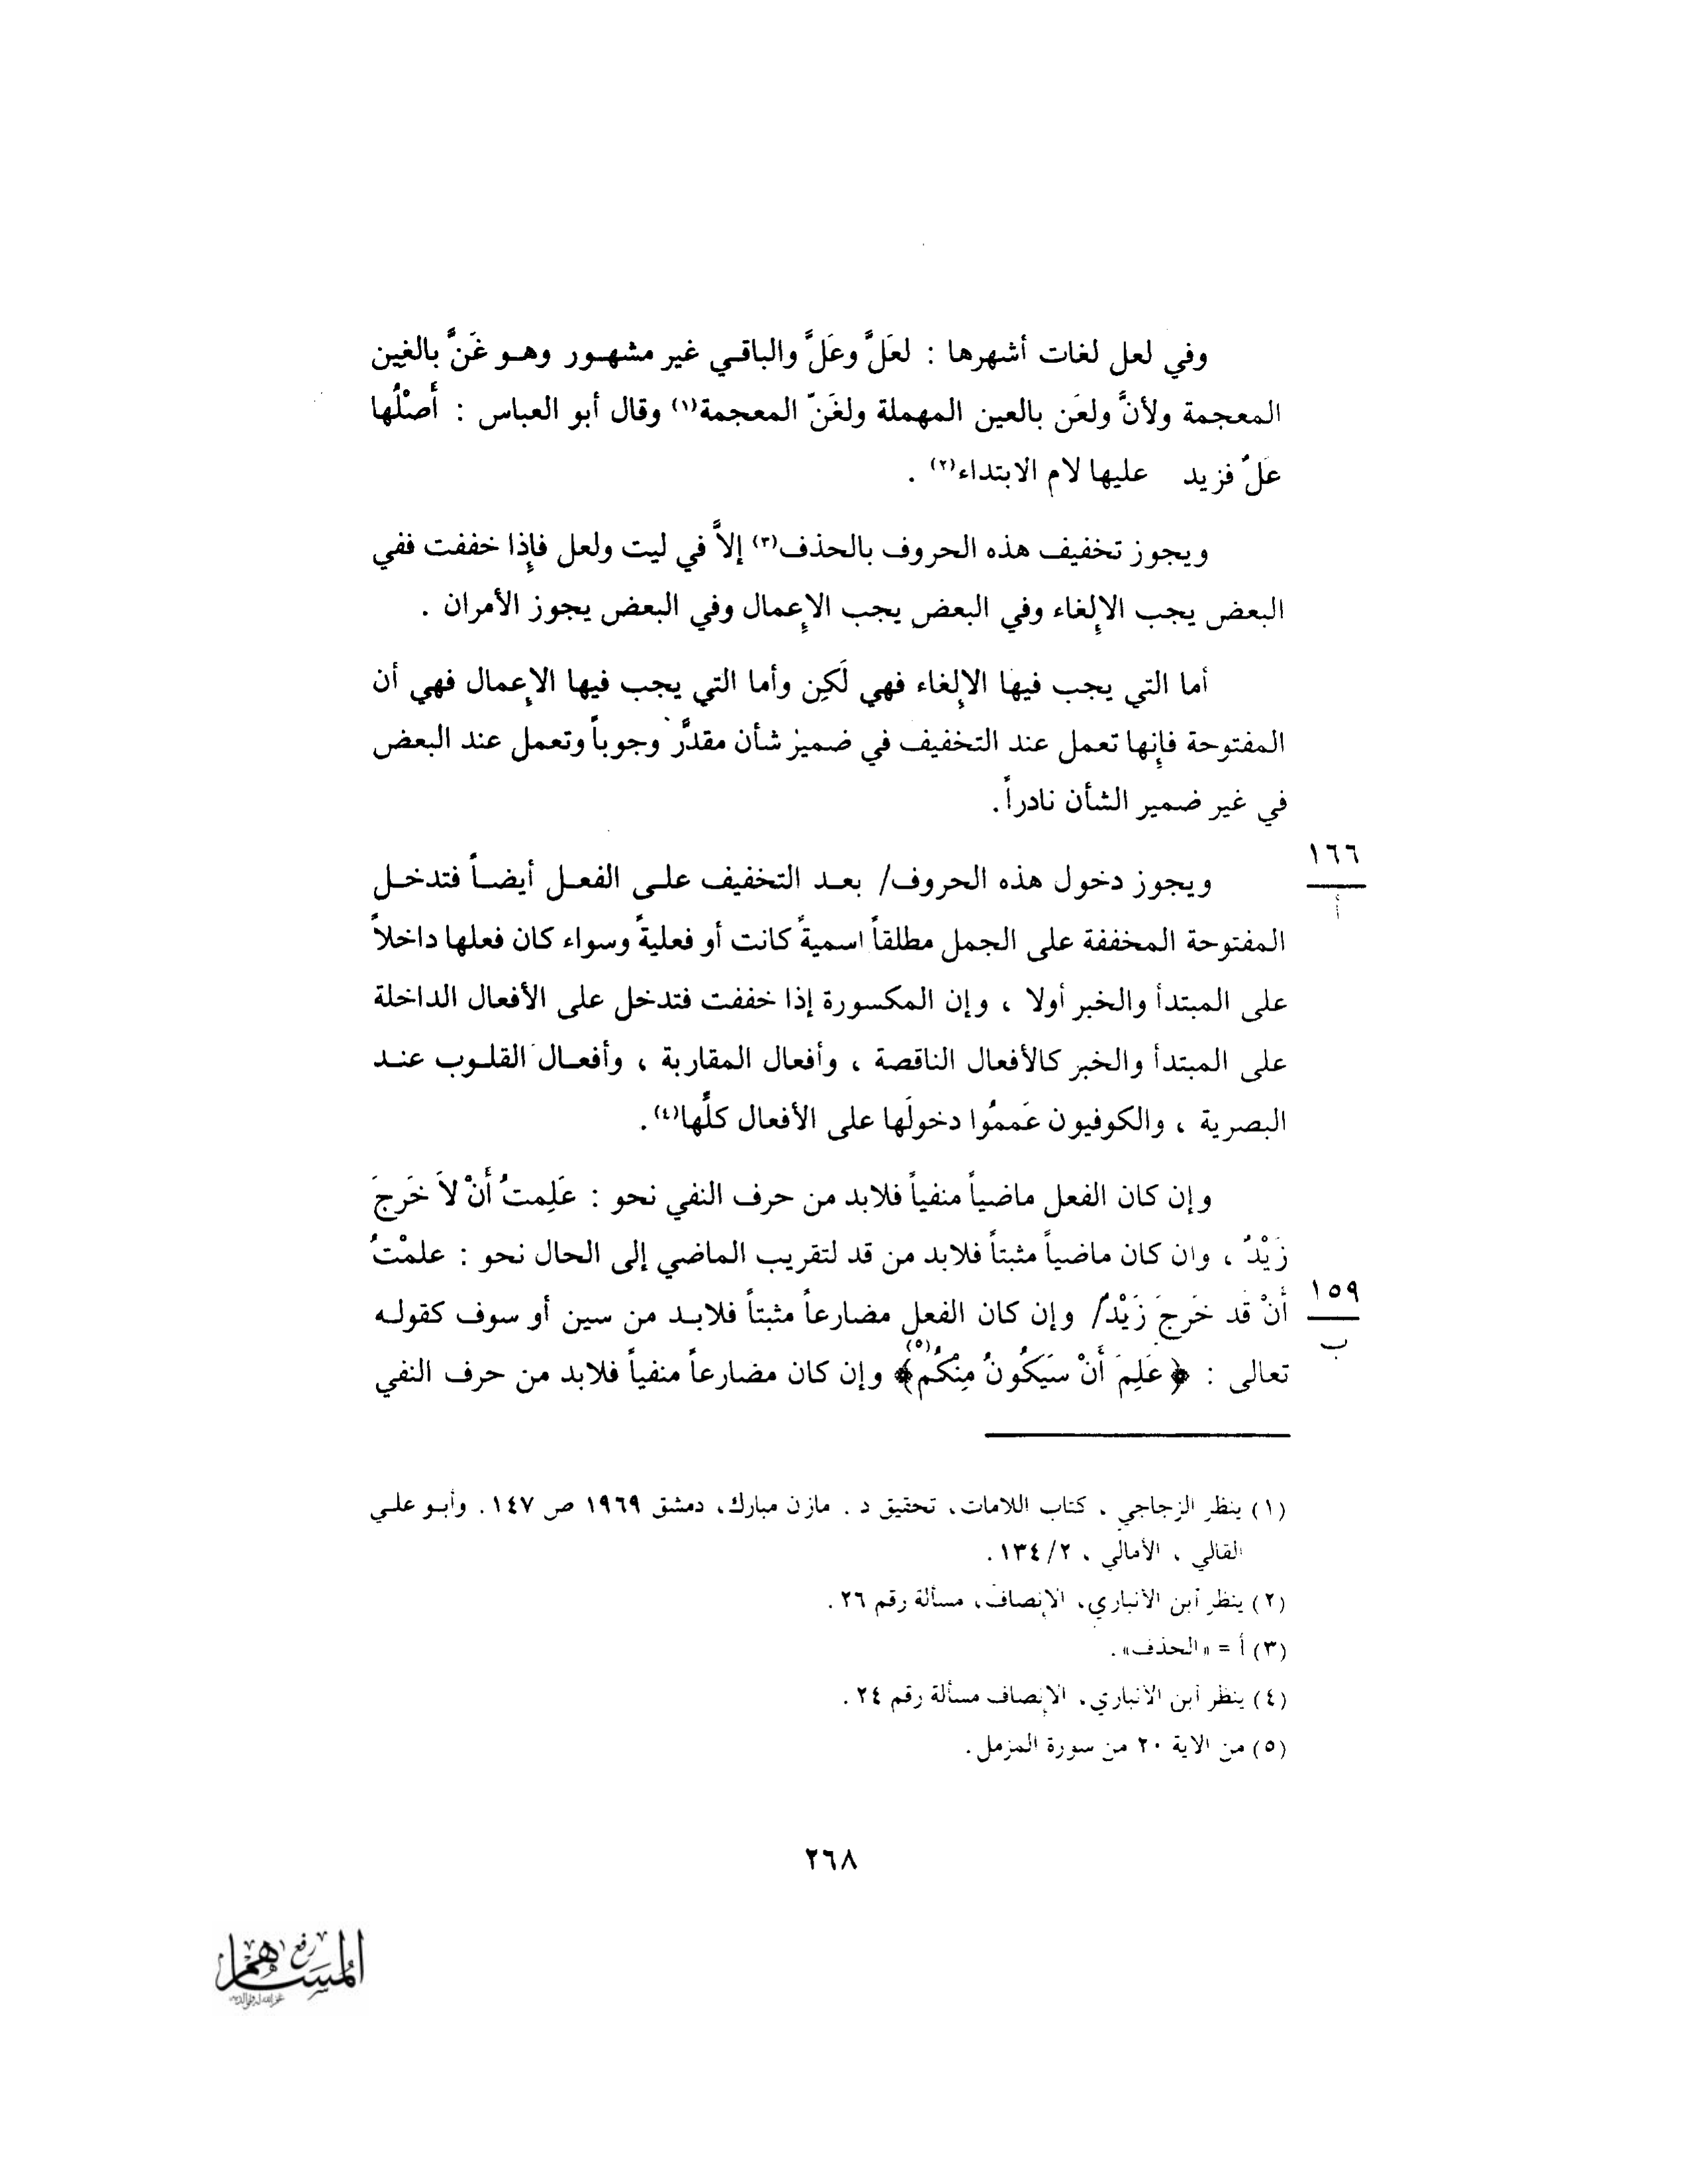 وفي لعل لغات أشهرها : لعَلَّ وعَلَّ والباقي غير مشهور وهو غَنَّ بالغين
المعجمة ولأنَّ ولعَن بالعين المهملة ولغَنّ المعجمة(١) وقال أبو العباس : أَصْلُها
عَلّ فزيد عليها لام الابتداء(٢) .
ويجوز تخفيف هذه الحروف بالحذف(٣) إلاَّ في ليت ولعل فإِذا خففت ففي
البعض يجب الإِلغاء وفي البعض يجب الإِعمال وفي البعض يجوز الأمران .
أما التي يجب فيها الإِلغاء فهي لَكِن وأما التي يجب فيها الإِعمال فهي أن
المفتوحة فإِنها تعمل عند التخفيف في ضمير شأن مقدَّر وجوباً وتعمل عند البعض
في غير ضمير الشأن نادراً.
١٦٦
أ
ويجوز دخول هذه الحروف/ بعد التخفيف على الفعل أيضاً فتدخل
المفتوحة المخففة على الجمل مطلقاً اسميةً كانت أو فعليةً وسواء كان فعلها داخلاً
على المبتدأ والخبر أولا ، وإن المكسورة إذا خففت فتدخل على الأفعال الداخلة
على المبتدأ والخبر كالأفعال الناقصة ، وأفعال المقاربة ، وأفعال القلوب عند
البصرية ، والكوفيون عَممُوا دخولَها على الأفعال كلِّها(٤).
وإن كان الفعل ماضياً منفياً فلابد من حرف النفي نحو : عَلِمتُ أَنْ لاَ خَرجَ
زَيْدٌ ، وان كان ماضياً مثبتاً فلابد من قد لتقريب الماضي إلى الحال نحو : علمْتُ
١٥٩
ب
أنْ قَد خَرجَ زَيْدٌ/ وإن كان الفعل مضارعاً مثبتاً فلابد من سين أو سوف كقوله
تعالى : ﴿عَلِمَ أَنْ سَيَكُونُ مِنْكُم﴾(٥) وإن كان مضارعاً منفياً فلابد من حرف النفي
(١) ينظر الزجاجي ، كتاب اللامات، تحقيق د . مازن مبارك، دمشق ١٩٦٩ ص ١٤٧. وأبو علي
القالي ، الأمالي ، ١٣٤/٢.
(٢) ينظر آبن الأنباري، الإنصاف، مسألة رقم ٢٦.
(٣) أ = «الحذف».
(٤) ينظر آبن الأنباري، الإنصاف مسألة رقم ٢٤.
(٥) من الاية ٢٠ من سورة المزمل.
٢٦٨
رفع
المساهم
غفر الله له ولوالديه